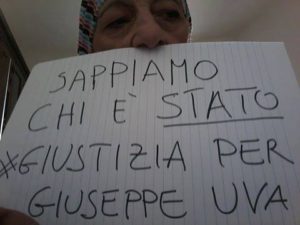 SAPPIAMO
CHI È STATO
#GIUSTIZIA PER
GIUSEPPE UVA